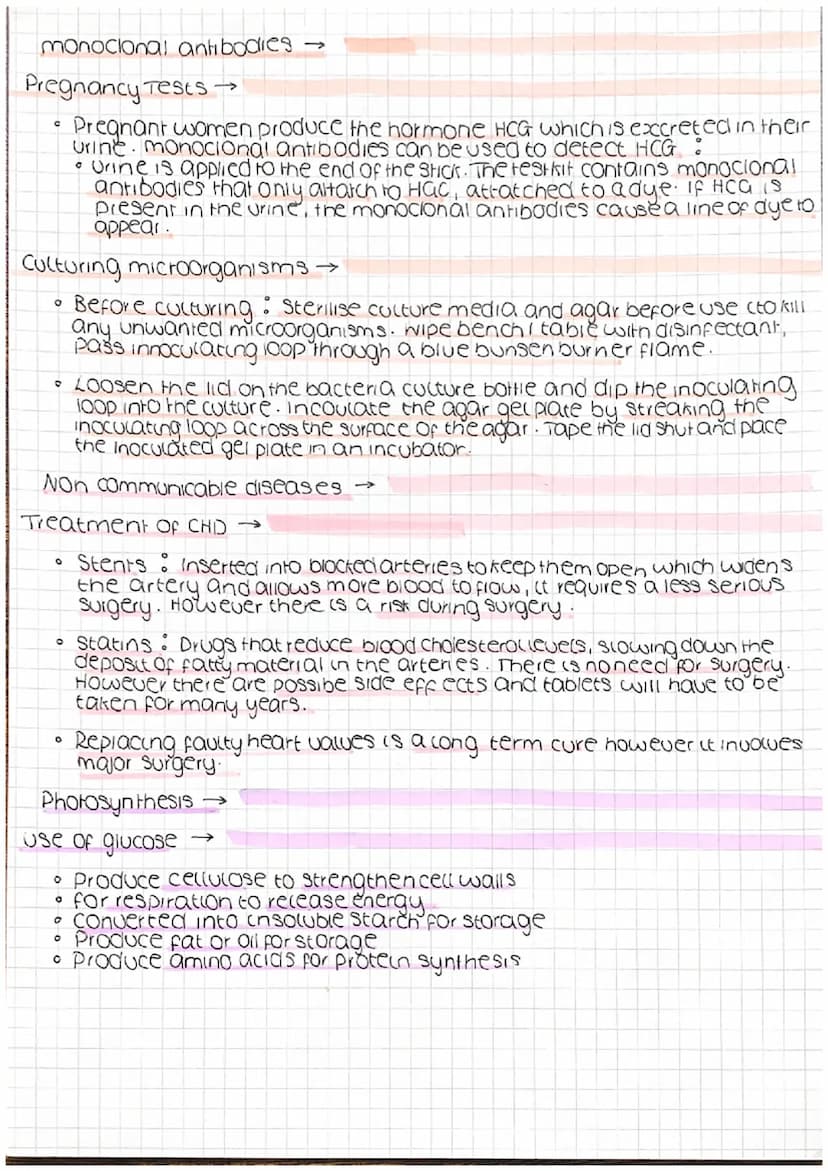 monoclonal antibodies →
Pregnancy Tests →
• Pregnant women produce the hormone HCG which is excreted in their
urine. monoclonal antibodies can be used to detect HCG :
• urine is applied to the end of the stick. The test kit contains monoclonal
antibodies that only attatch to HGC, attatched to a dye. If HCG is
present in the urine, the monoclonal antibodies cause a line of dye to
appear.
Culturing microorganisms →
• Before culturing : Sterilise culture media and agar before use (to kill
any unwanted microorganisms. wipe bench / table with disinfectant,
pass innoculating loop through a blue bunsen burner flame.
• Loosen the lid on the bacteria culture bottle and dip the inoculating
loop into the culture. incoulate the agar gel plate by streaking the
inoculating loop across the surface of the agar. Tape the lid shut and place
the inoculated gel plate in an incubator.
Non communicable diseases →
Treatment of CHD →
• Stents : inserted into blocked arteries to keep them open which widens
the artery and allows more blood to flow, it requires a less serious
surgery. However there is a risk during surgery.
• Statins : Drugs that reduce blood cholesterol levels, slowing down the
deposit of fatty material in the arteries. There is no need for surgery.
However there are possibe side effects and tablets will have to be
taken for many years.
• Replacing faulty heart valves is a long term cure however it involves
major surgery.
Photosynthesis →
use of glucose →
• Produce cellulose to strengthen cell walls
• for respiration to release energy
• converted into insoluble starch for storage
• Produce fat or oil for storage
• Produce amino acids for protein synthesis